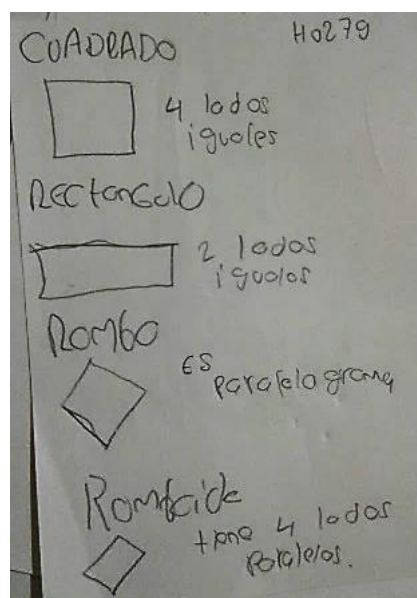 CUADRADO H0279
4 lados
iguales
Rectangulo
2 lados
iguales
Rombo
es
paralelograma
Romboide
tene 4 lados
paralelos.